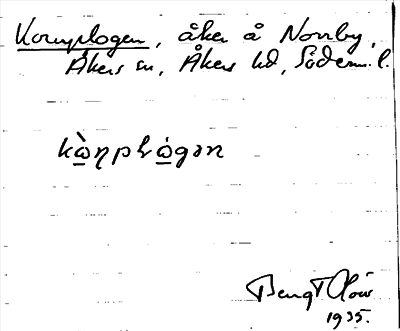 Kornplogen, åker å Norrby,
Åkers sn, Åkers hd, Söderm. l.
kὼηplὼgən
Bengt
1935.